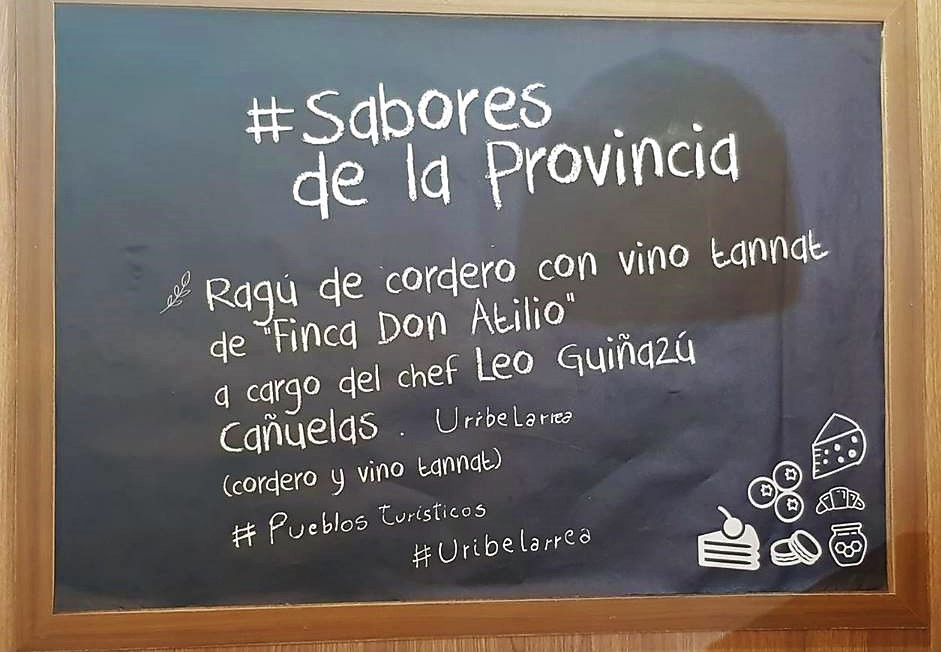 #Sabores
de la Provincia
Ragú de cordero con vino tannat
de "Finca Don Atilio"
a cargo del chef Leo Guiñazú
Cañuelas . Uribelarrea
(cordero y vino tannat)
# Pueblos Turísticos
#Uribelarrea